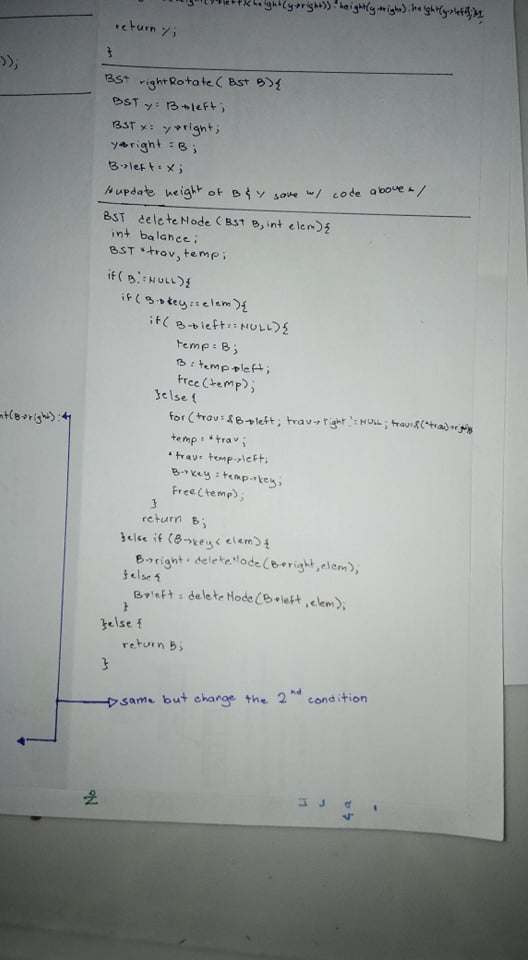 height(y->right)) ? height(y->right) : height(y->left))+1
return y;
}
));
BST rightRotate ( BST B){
BST y = B->left;
BST x = y->right;
y->right = B;
B->left = x;
/*update height of B & y same w/ code above */
BST deleteNode (BST B, int elem){
int balance;
BST *trav, temp;
if( B != NULL){
if( B->key == elem){
if( B->left == NULL){
temp = B;
B = temp->left;
free(temp);
}else{
for(trav = &B->left; trav->right != NULL; trav=&(*trav)->right)
temp = *trav;
*trav = temp->left;
B->key = temp->key;
free(temp);
}
return B;
}else if (B->key < elem){
B->right = deleteNode(B->right, elem);
}else{
B->left = deleteNode(B->left, elem);
}
}else{
return B;
}
ht(B->right) :
same but change the 2nd condition
2